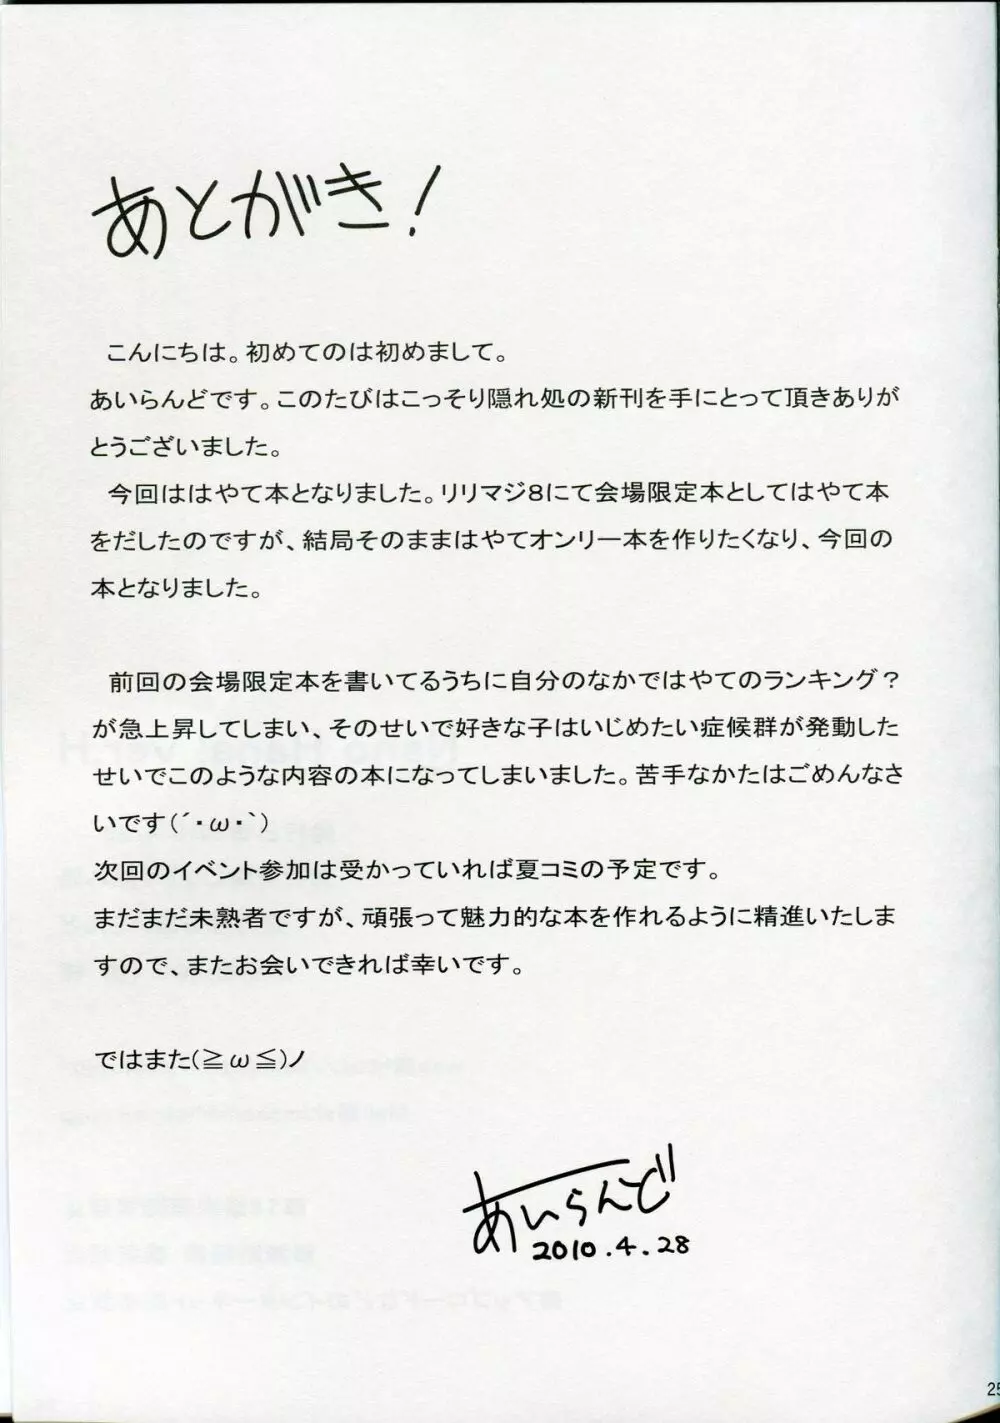 あとがき！
こんにちは。初めてのは初めまして。
あいらんどです。このたびはこっそり隠れ処の新刊を手にとって頂きありが
とうございました。
今回ははやて本となりました。リリマジ８にて会場限定本としてはやて本
をだしたのですが、結局そのままはやてオンリー本を作りたくなり、今回の
本となりました。
前回の会場限定本を書いてるうちに自分のなかではやてのランキング？
が急上昇してしまい、そのせいで好きな子はいじめたい症候群が発動した
せいでこのような内容の本になってしまいました。苦手なかたはごめんなさ
いです(´・ω・`)
次回のイベント参加は受かっていれば夏コミの予定です。
まだまだ未熟者ですが、頑張って魅力的な本を作れるように精進いたしま
すので、またお会いできれば幸いです。
ではまた(≧ω≦)ノ
あいらんど
2010.4.28
25